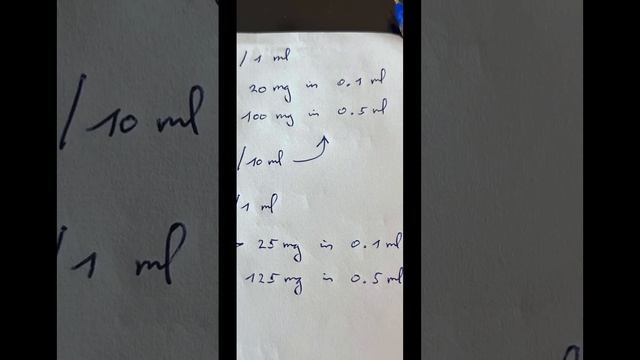 /1 ml
20 mg in 0.1 ml
100 mg in 0.5 ml
/10 ml
/1 ml
25 mg in 0.1 ml
125 mg in 0.5 ml
/10 ml
/1 ml